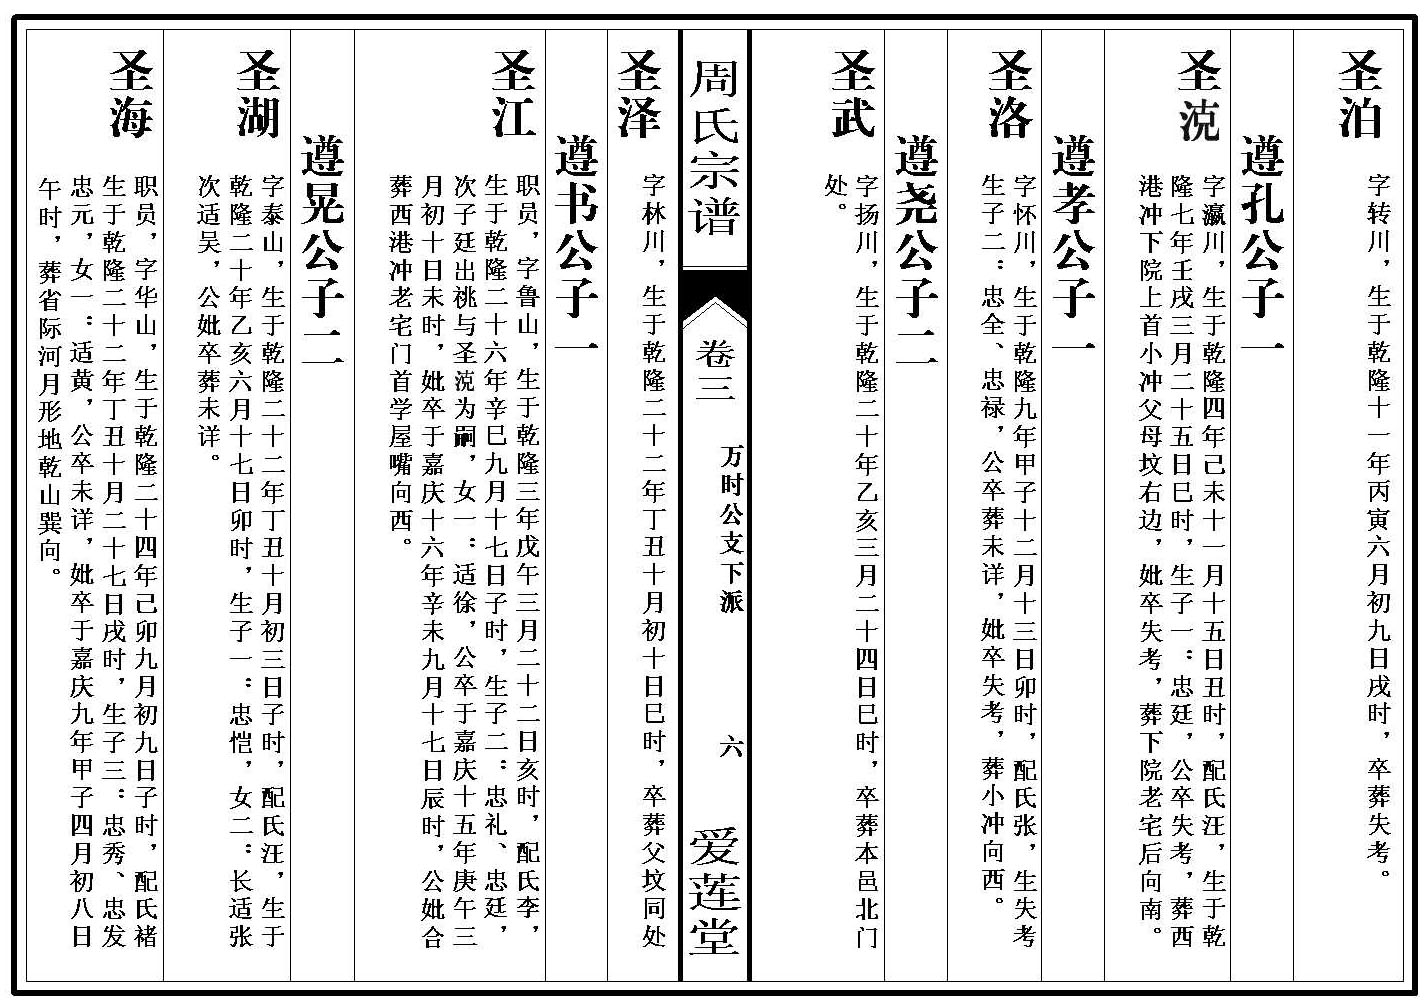 圣泊
字转川，生于乾隆十一年丙寅六月初九日戌时，卒葬失考。
遵孔公子一
圣涗
字瀛川，生于乾隆四年己未十一月十五日丑时，配氏汪，生于乾
隆七年壬戌三月二十五日巳时，生子一：忠廷，公卒失考，葬西
港冲下院上首小冲父母坟右边，妣卒失考，葬下院老宅后向南。
遵孝公子一
圣洛
字怀川，生于乾隆九年甲子十二月十三日卯时，配氏张，生失考
生子二：忠全、忠禄，公卒葬未详，妣卒失考，葬小冲向西。
遵尧公子二
圣武
字扬川，生于乾隆二十年乙亥三月二十四日巳时，卒葬本邑北门
处。
周氏宗谱
卷三
万时公支下派
六
爱莲堂
圣泽
字林川，生于乾隆二十二年丁丑十月初十日巳时，卒葬父坟同处
遵书公子一
圣江
职员，字鲁山，生于乾隆三年戊午三月二十二日亥时，配氏李，
生于乾隆二十六年辛巳九月十七日子时，生子二：忠礼、忠廷，
次子廷出祧与圣涗为嗣，女一：适徐，公卒于嘉庆十五年庚午三
月初十日未时，妣卒于嘉庆十六年辛未九月十七日辰时，公妣合
葬西港冲老宅门首学屋嘴向西。
遵晃公子二
圣湖
字泰山，生于乾隆二十二年丁丑十月初三日子时，配氏汪，生于
乾隆二十年乙亥六月十七日卯时，生子一：忠恺，女二：长适张
次适吴，公妣卒葬未详。
圣海
职员，字华山，生于乾隆二十四年己卯九月初九日子时，配氏褚
生于乾隆二十二年丁丑十月二十七日戌时，生子三：忠秀、忠发
忠元，女一：适黄，公卒未详，妣卒于嘉庆九年甲子四月初八日
午时，葬省际河月形地乾山巽向。